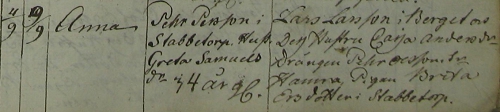 4/9 10/9 Anna
Pehr Persson i
Stabbetorp. Hustr.
Greta Samuels
dr 34 år gl.
Lars Larsson i Berget och
Des Hustru Caisa Andersdr
Drängen Pehr
Hamra Pigan Brita
Ersdotter i Stabbetorp.